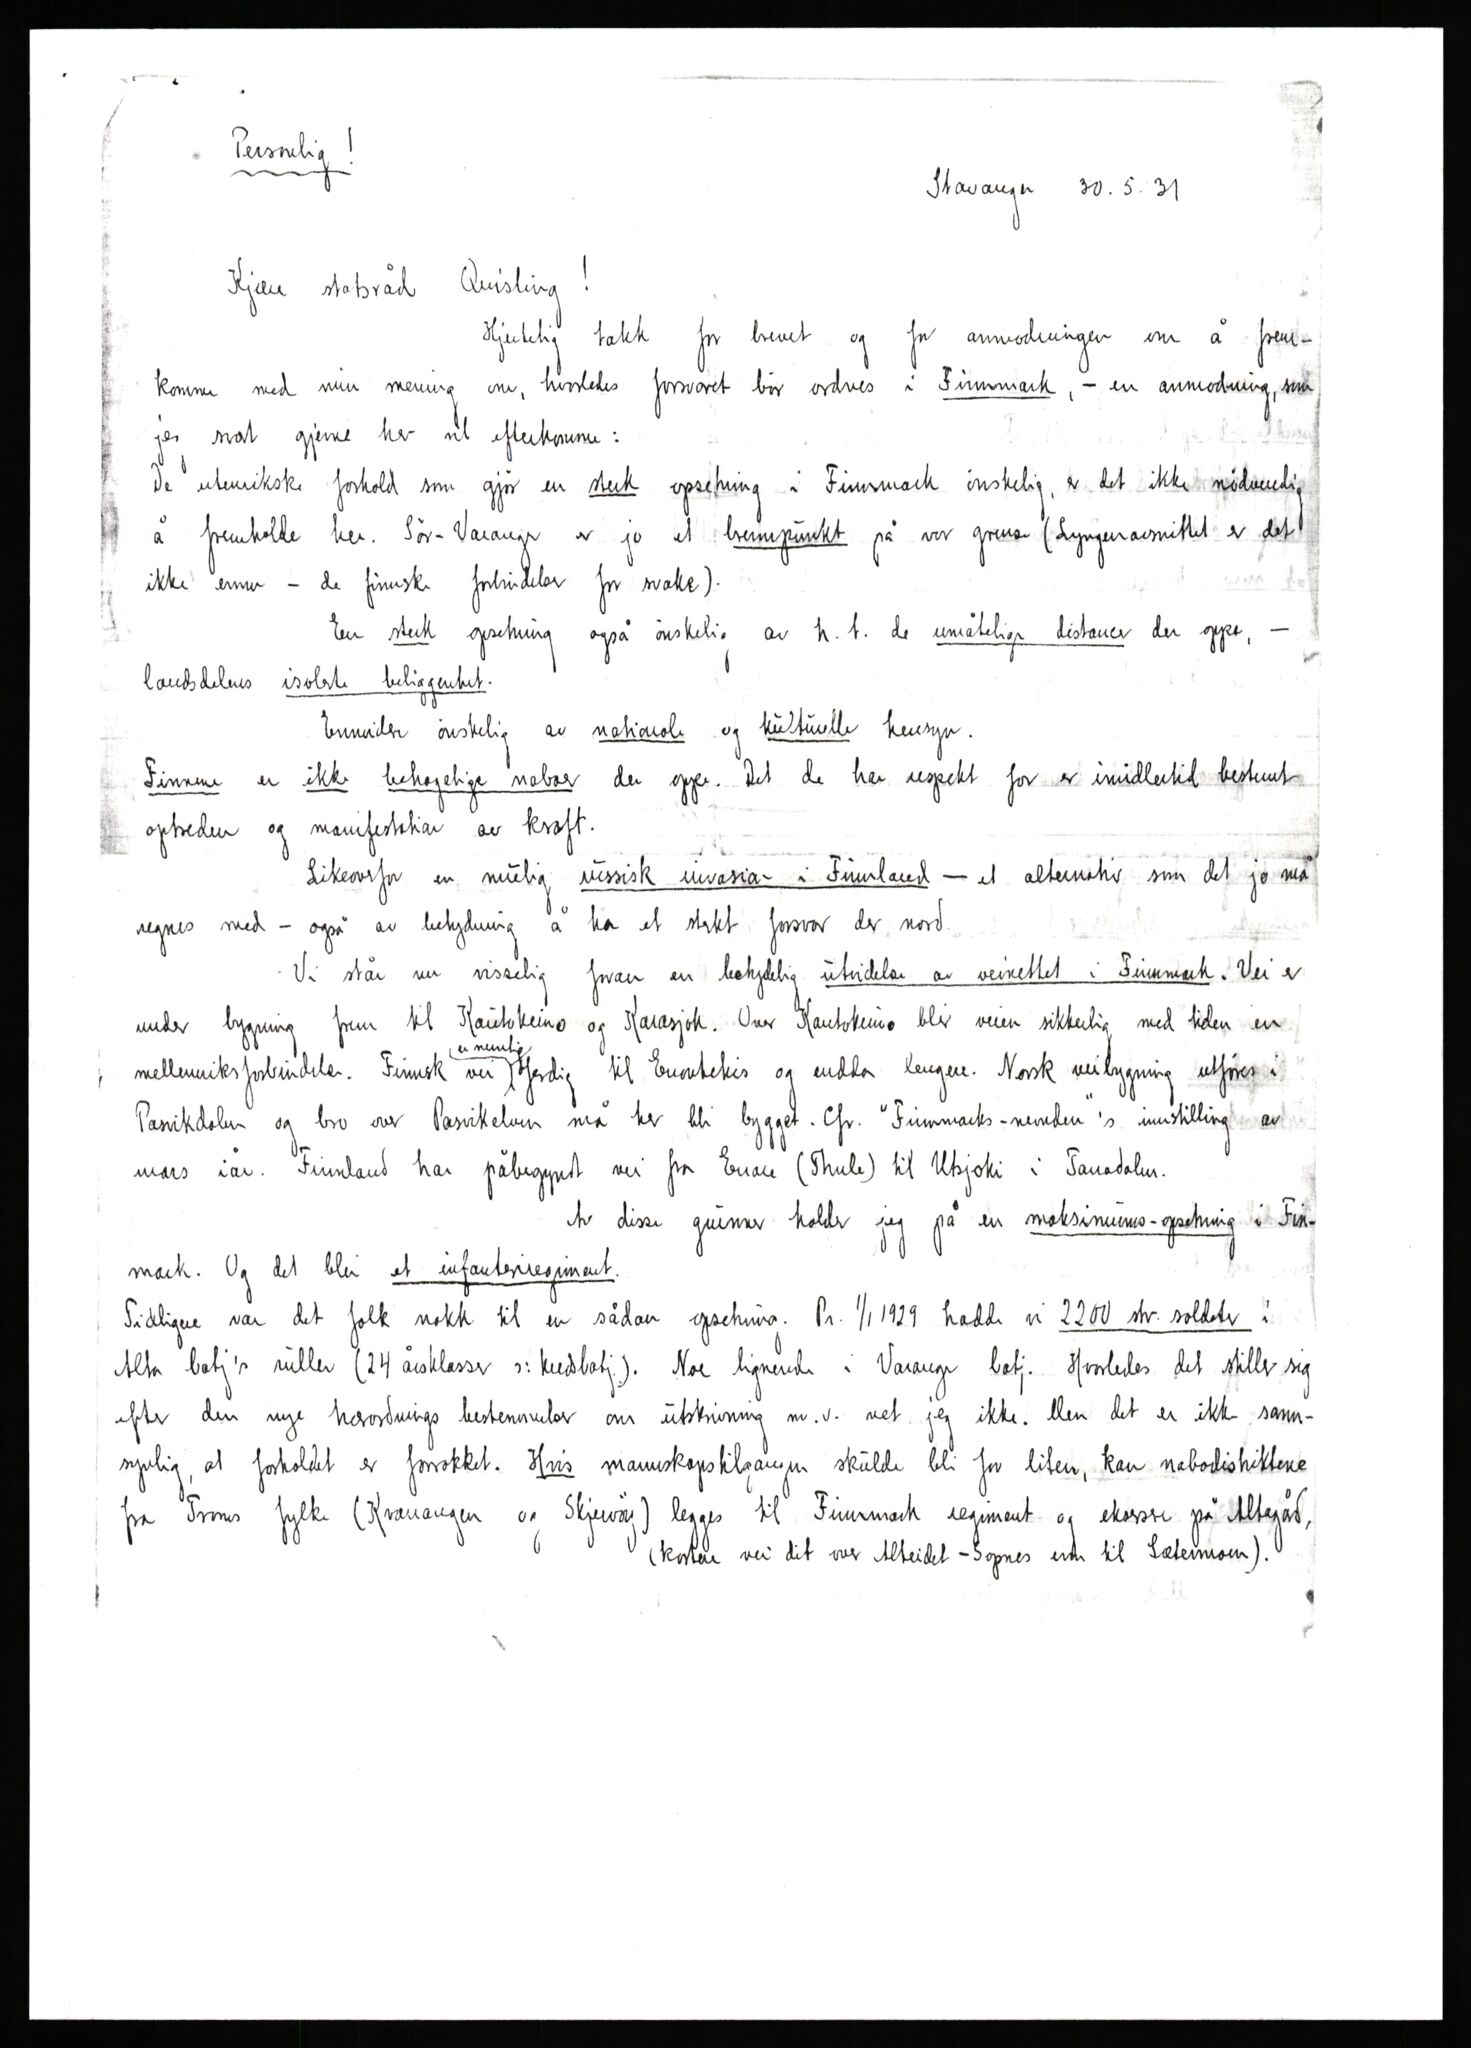 Personlig!
Stavanger 30.5.31
Kjære statsråd Quisling!
Hjertelig takk for brevet og for anmodningen om å frem-
komme med min mening om, hvorledes forsvaret bör ordnes i Finnmark, – en anmodning, som
jeg svært gjerne her vil efterkomme:
De utenrikske forhold som gjör en sterk opsetning i Finnmark önskelig, er det ikke nödvendig
å fremholde her. Sör-Varanger er jo et brennpunkt på vor grense (Lyngenavsnittet er det
ikke ennu – de finnske forbindelser for svake).
En sterk opsetning også önskelig av h.t. de umåtelige distancer der oppe, –
landsdelens isolerte beliggenhet.
Ennvidere önskelig av nationale og kulturelle hensyn.
Finnene er ikke behagelige naboer der oppe. Det de har respekt for er imidlertid bestemt
optreden og manifestation av kraft.
Likeoverfor en mulig russisk invasion i Finnland – et alternativ som det jo må
regnes med – også av betydning å ha et sterkt forsvar der nord.
Vi står nu visselig foran en betydelig utvidelse av veinettet i Finnmark. Vei er
under bygning frem til Kautokeino og Karasjok. Over Kautokeino blir veien sikkerlig med tiden en
mellemriksforbindelse. Finnsk vei er nemlig ferdig til Enontekis og endda lengere. Norsk veibygning utföres i
Pasvikdalen og bro over Pasvikelven må her bli bygget. Cfr. "Finnmarks-nevnden"'s innstilling av
mars iår. Finnland har påbegynt vei fra Enare (Thule) til Utsjoki i Tanadalen.
Av disse grunner holder jeg på en maksimums-opsetning i Fin-
mark. Og det blir et infanteriregiment.
Tidligere var det folk nokk til en sådan opsetning. Pr. 1/1 1929 hadde vi 2200 str. soldater i
Alta batj's ruller (24 årsklasser s: kredsbatj.). Noe lignende i Varanger batj. Hvorledes det stiller sig
efter den nye hærordnings bestemmelser om utskrivning m.v. vet jeg ikke. Men det er ikke sann-
synlig, at forholdet er forrokket. Hvis mannskapstilgangen skulde bli for liten, kan nabodistriktene
fra Troms fylke (Kvænangen og Skjervöy) legges til Finnmark regiment og eksersere på Altagård,
(kortere vei dit over Alteidet – Sopnes enn til Sætermoen).